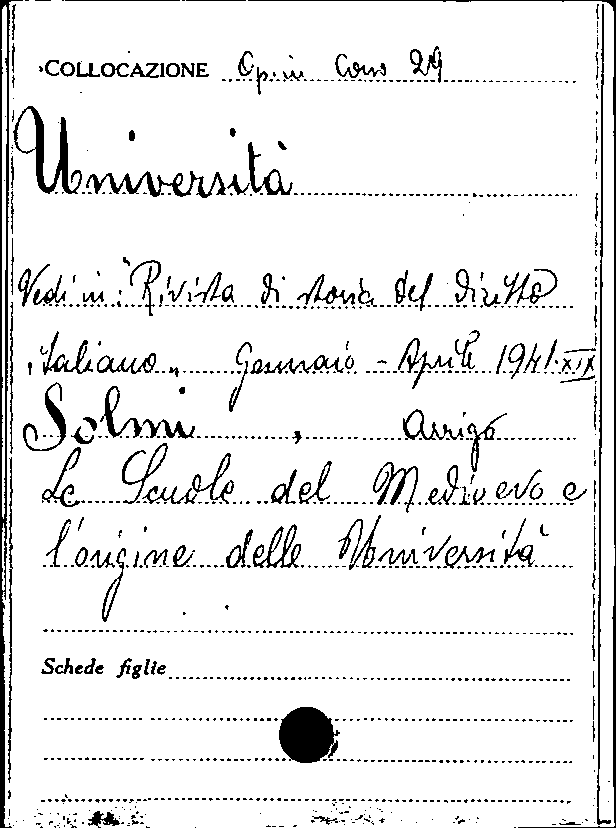 COLLOCAZIONE Op. in Corso 29
Università
Vedi in: "Rivista di storia del diritto
italiano" Gennaio - Aprile 1941.XIX
Solmi, Arrigo
Le Scuole del Medioevo e
l'origine delle Università
Schede figlie